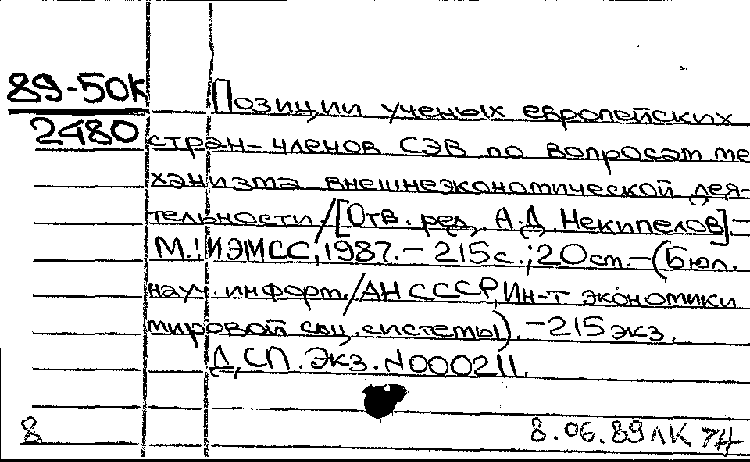 89-50К Позиции ученых европейских
2480 стран-членов СЭВ по вопросам ме
ханизма внешнеэкономической дея-
тельности / [Отв. ред. А.Д. Некипелов] -
М.: ИЭМСС, 1987. - 215 с.; 20 см. - (Бюл.
науч. информ. / АН СССР, Ин-т экономики
мировой соц. системы). - 215 экз.
Д.СП. Экз. N000211.
8 8.06.89 ЛК